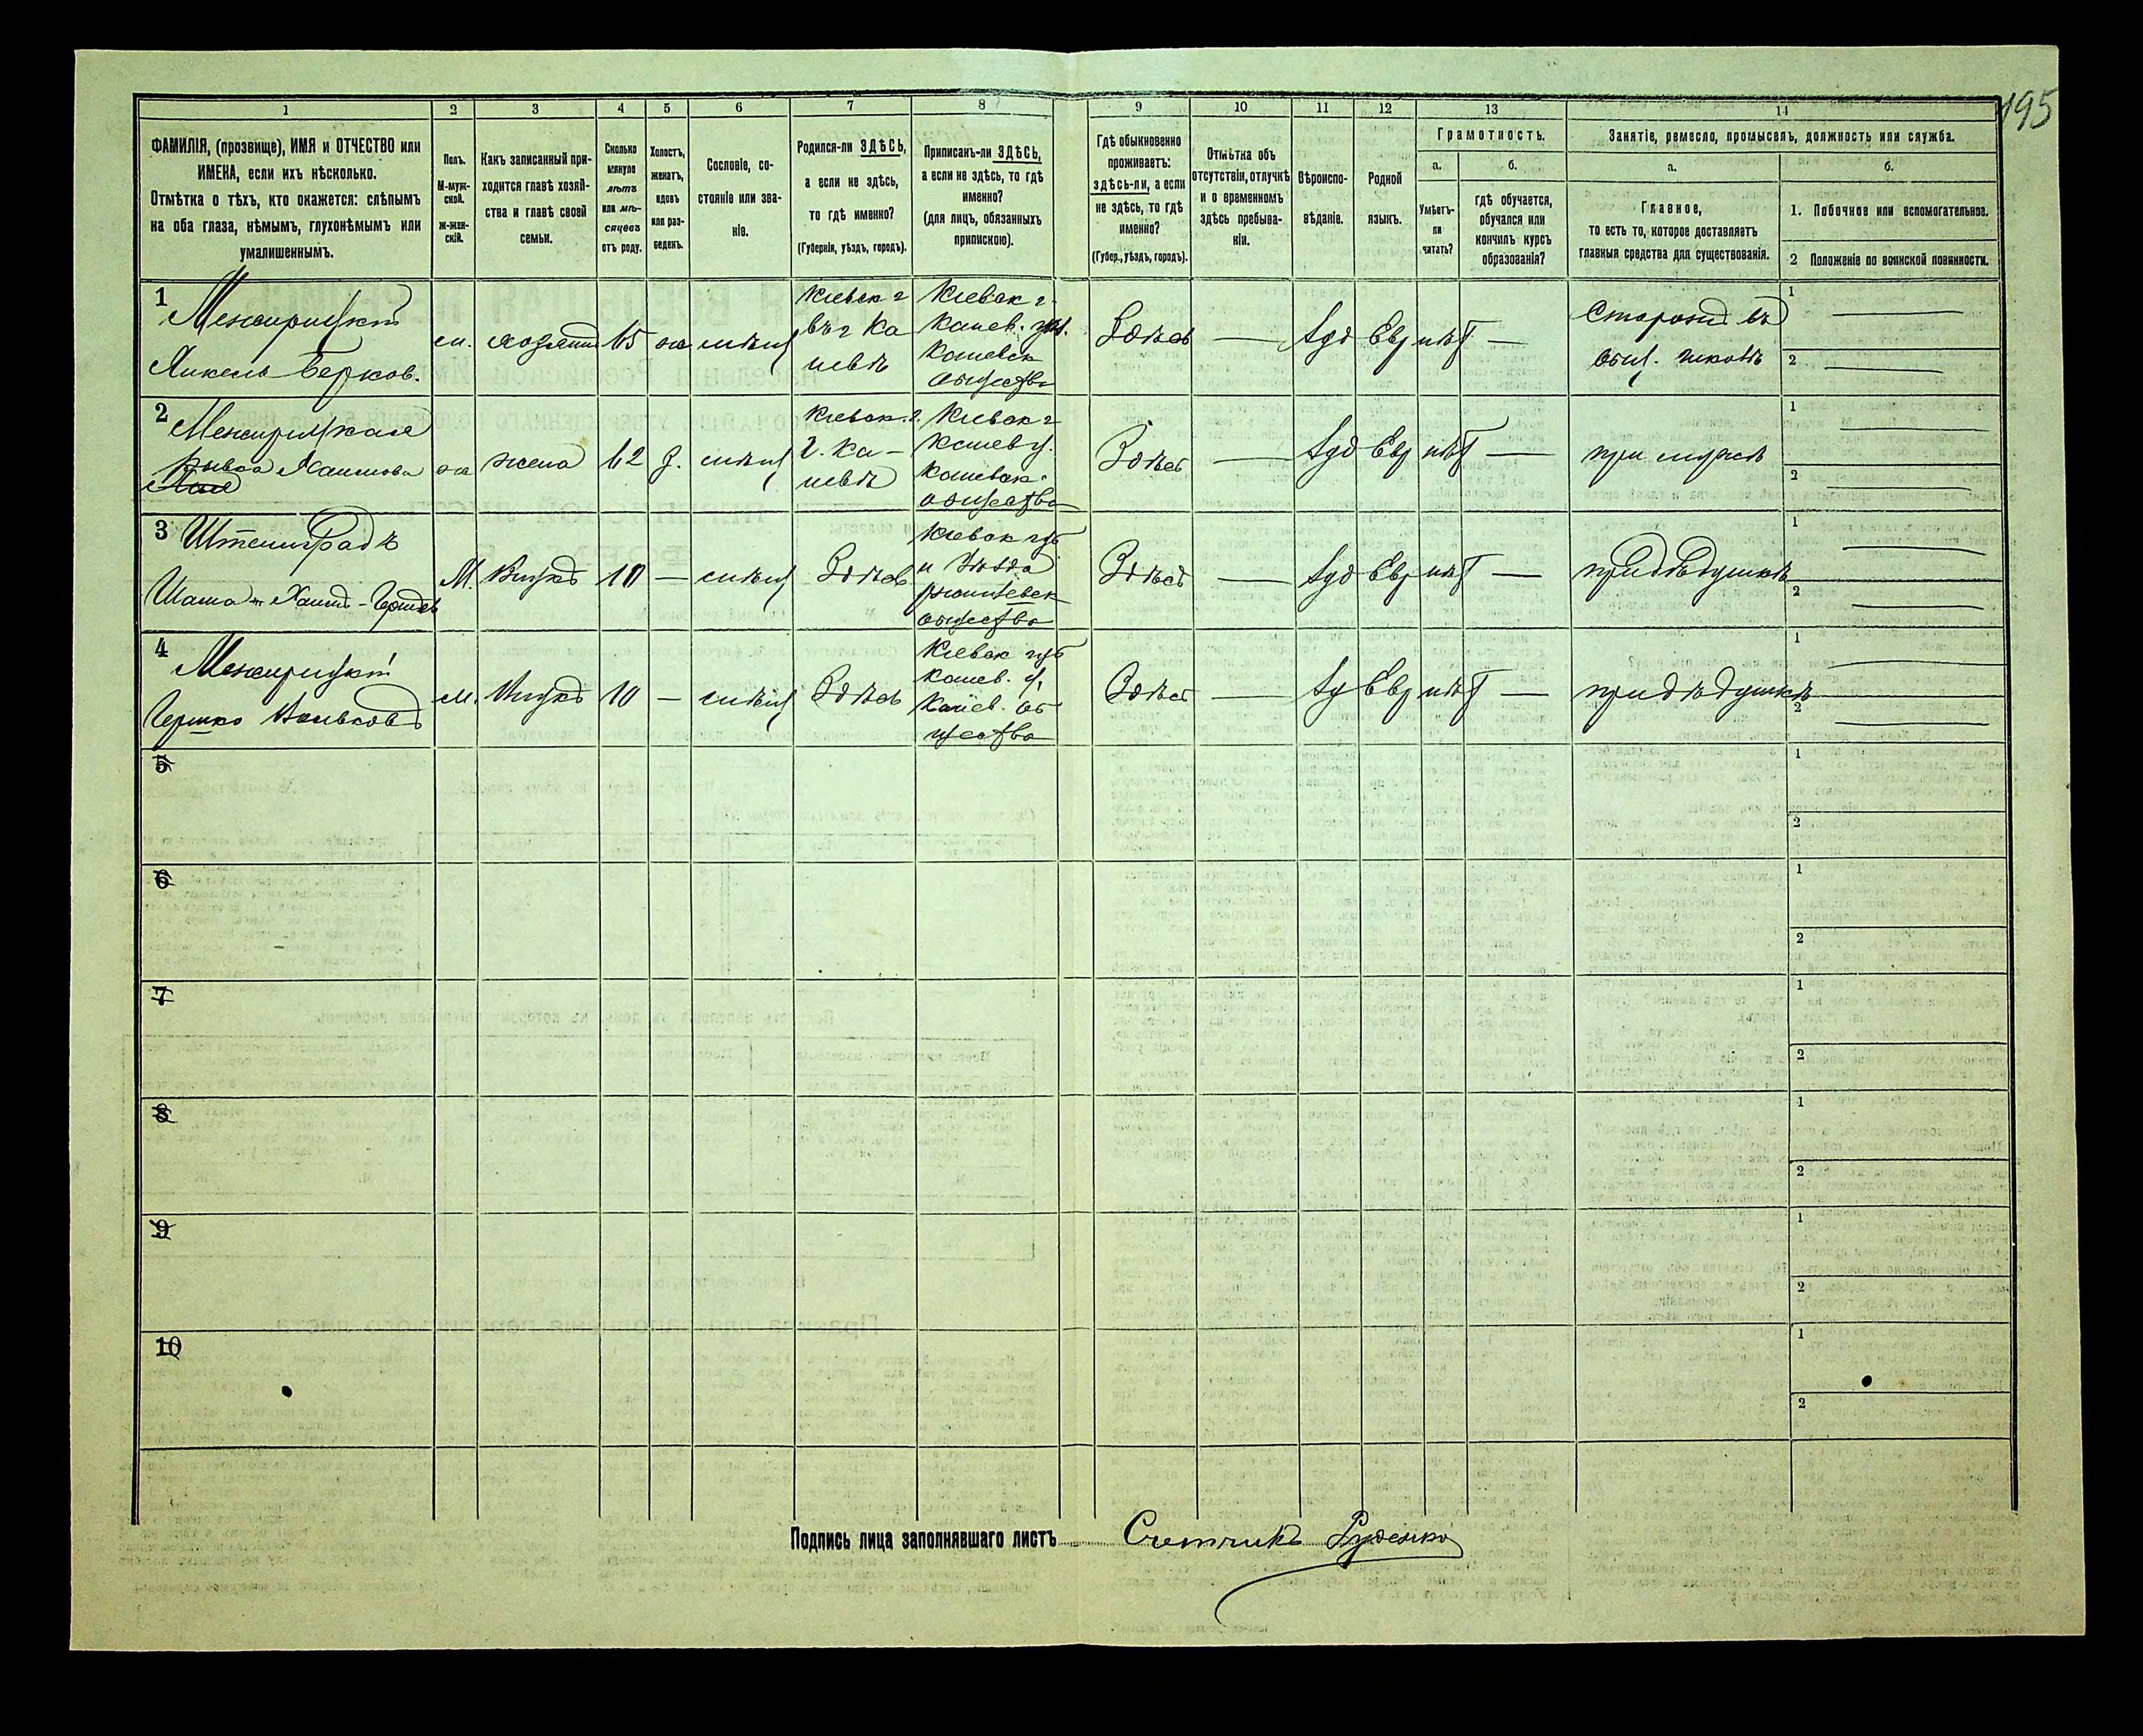 195
1
2
3
4
5
6
7
8
9
10
11
12
13
14
ФАМИЛІЯ, (прозвище), ИМЯ и ОТЧЕСТВО или
ИМЕНА, если ихъ нѣсколько.
Отмѣтка о тѣхъ, кто окажется: слѣпымъ
на оба глаза, нѣмымъ, глухонѣмымъ или
умалишеннымъ.
Полъ.
М-муж-
ской.
Ж-жен-
скій.
Какъ записанный при-
ходится главѣ хозяй-
ства и главѣ своей
семьи.
Сколько
минуло
лѣтъ
или мѣ-
сяцевъ
отъ роду.
Холостъ,
женатъ,
вдовъ
или раз-
веденъ.
Сословіе, со-
стояніе или зва-
ніе.
Родился-ли ЗДѢСЬ,
а если не здѣсь,
то гдѣ именно?
(Губернія, уѣздъ, городъ).
Приписанъ-ли ЗДѢСЬ,
а если не здѣсь, то гдѣ
именно?
(для лицъ, обязанныхъ
припискою).
Гдѣ обыкновенно
проживаетъ:
здѣсь-ли, а если
не здѣсь, то гдѣ
именно?
(Губер., уѣздъ, городъ).
Отмѣтка объ
отсутствіи, отлучкѣ
и о временномъ
здѣсь пребыва-
ніи.
Вѣроиспо-
вѣданіе.
Родной
языкъ.
Грамотность.
а.
б.
Умѣетъ-
ли
читать?
гдѣ обучается,
обучался или
кончилъ курсъ
образованія?
Занятіе, ремесло, промыселъ, должность или служба.
а.
б.
Главное,
то есть то, которое доставляетъ
главныя средства для существованія.
1. Побочное или вспомогательное.
2 Положеніе по воинской повинности.
1
Межирицкій
Берков.
м.
хозяинъ
65
ж
мѣщ
Кіевск г
въ г Ка
невѣ
Кіевск г.
Канев. у.
Каневск
общества
Здѣсь
—
Іуд
Евр
нѣт
—
Сторожъ въ
1
2
2
Межирицкая
жена
62
З.
мѣщ
Кіевск. г.
г. Ка-
невѣ
Кіевск г
Канев у.
Каневск.
общества
Здѣсь
—
Іуд
Евр
нѣт
—
при мужѣ
1
2
3
М.
Внукъ
10
—
мѣщ
Здѣсь
Кіевск губ
и уѣзда
общества
Здѣсь
—
Іуд
Евр
нѣт
—
при дѣдушкѣ
1
2
4
Межирицкій
Гершко Вольковъ
м.
Внукъ
10
—
мѣщ
Здѣсь
Кіевск губ
Канев. у.
Канев. об
щества
Здѣсь
—
Іуд
Евр
нѣт
—
при дѣдушкѣ
1
2
5
1
2
6
1
2
7
1
2
8
1
2
9
1
2
10
1
2
Подпись лица заполнявшаго листъ Счетчикъ Руденко